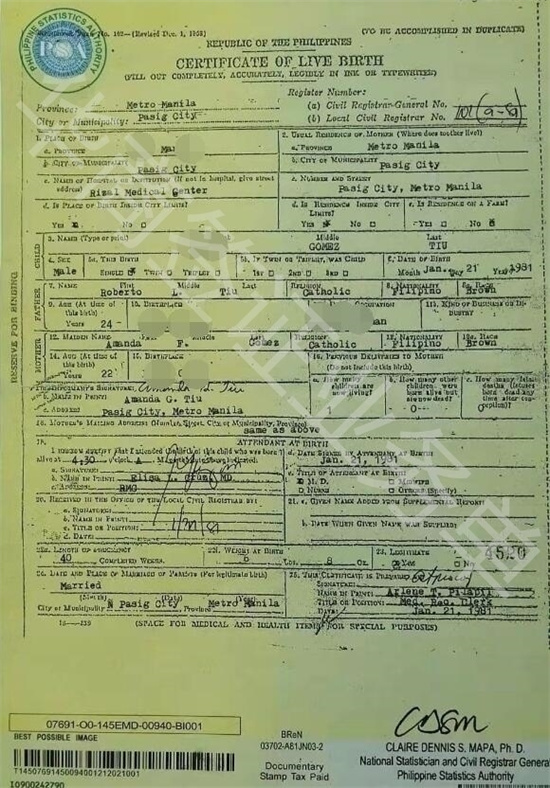 PHILIPPINE STATISTICS AUTHORITY
PSA
Form No. 102—(Revised Dec. 1, 1958)
(TO BE ACCOMPLISHED IN DUPLICATE)
REPUBLIC OF THE PHILIPPINES
CERTIFICATE OF LIVE BIRTH
(FILL OUT COMPLETELY, ACCURATELY, LEGIBLY IN INK OR TYPEWRITER)
Register Number:
Province: Metro Manila
(a) Civil Registrar-General No.
City or Municipality: Pasig City
(b) Local Civil Registrar No.
1. PLACE OF BIRTH
2. USUAL RESIDENCE OF MOTHER (Where does mother live?)
a. PROVINCE
a. PROVINCE Metro Manila
b. CITY OR MUNICIPALITY Pasig City
b. CITY OF MUNICIPALITY Pasig City
c. NAME OF HOSPITAL OR INSTITUTION (If not in hospital, give street address) Rizal Medical Center
c. NUMBER AND STREET Pasig City, Metro Manila
d. IS PLACE OF BIRTH INSIDE CITY LIMITS?
d. IS RESIDENCE INSIDE CITY LIMITS?
e. IS RESIDENCE ON A FARM?
YES NO
YES NO
YES NO
RESERVE FOR BINDING
CHILD
3. NAME (Type or print)
Middle
Last
GOMEZ
TIU
4. SEX
5a. THIS BIRTH
5b. IF TWIN OR TRIPLET, WAS CHILD
6. DATE OF BIRTH
Male
SINGLE TWIN TRIPLET
1ST 2ND 3RD
Month Jan. Day 21 Year 1981
FATHER
7. NAME First Middle Last
RELIGION
8. NATIONALITY
8a. RACE
Roberto L. Tiu
Catholic
Filipino
Brown
9. AGE (At time of this birth)
10. BIRTHPLACE
11b. KIND OF BUSINESS OR INDUSTRY
Years 24
MOTHER
12. MAIDEN NAME
Last
RELIGION
13. NATIONALITY
13a. RACE
Amanda F. Gomez
Catholic
Filipino
Brown
14. AGE (At time of this birth)
15. BIRTHPLACE
16. PREVIOUS DELIVERIES TO MOTHER
(Do not include this birth)
Years 22
a. How many children are now living?
b. How many other children were born alive but are now dead?
c. How many fetal deaths (fetuses born dead any time after conception)?
17. INFORMANT'S SIGNATURE:
b. NAME IN PRINT: Amanda G. Tiu
c. ADDRESS: Pasig City, Metro Manila
18. MOTHER'S MAILING ADDRESS (Number, Street, City or Municipality, Province)
same as above
19. ATTENDANT AT BIRTH
I HEREBY CERTIFY that I attended the birth of this child who was born alive at 4:30 o'clock A M.
d. DATE SIGNED BY ATTENDANT AT BIRTH
Jan. 21, 1981
a. SIGNATURE:
e. TITLE OF ATTENDANT AT BIRTH
b. NAME IN PRINT: Elisa L. Cruz, MD
M. D. MIDWIFE
c. ADDRESS: RMC
NURSE OTHERS (Specify)
20. RECEIVED IN THE OFFICE OF THE LOCAL CIVIL REGISTRAR BY:
21. a. GIVEN NAME ADDED FROM SUPPLEMENTAL REPORT:
a. SIGNATURE:
b. NAME IN PRINT:
b. DATE WHEN GIVEN NAME WAS SUPPLIED:
c. TITLE OR POSITION:
d. DATE:
22a. LENGTH OF PREGNANCY
22b. WEIGHT AT BIRTH
23. LEGITIMATE
40 COMPLETED WEEKS
6 LBS. 8 OZ.
YES NO
24. DATE AND PLACE OF MARRIAGE OF PARENTS (For legitimate birth)
25. THIS CERTIFICATE IS PREPARED BY
Married
SIGNATURE:
NAME IN PRINT: Arlene T. Pilapil
City or Municipality Pasig City Metro Manila
TITLE OR POSITION: Med. Rec. Clerk
DATE: Jan. 21, 1981
(SPACE FOR MEDICAL AND HEALTH ITEMS FOR SPECIAL PURPOSES)
07691-O0-145EMD-00940-BI001
BEST POSSIBLE IMAGE
BReN
03702-A81JN03-2
T145076914500940012120210​01
I0900242790
Documentary
Stamp Tax Paid
CLAIRE DENNIS S. MAPA, Ph. D.
National Statistician and Civil Registrar General
Philippine Statistics Authority